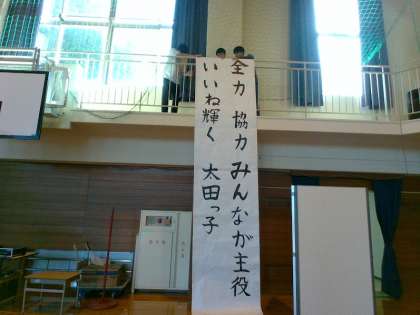 全力 協力 みんなが主役
いいね輝く 太田っ子